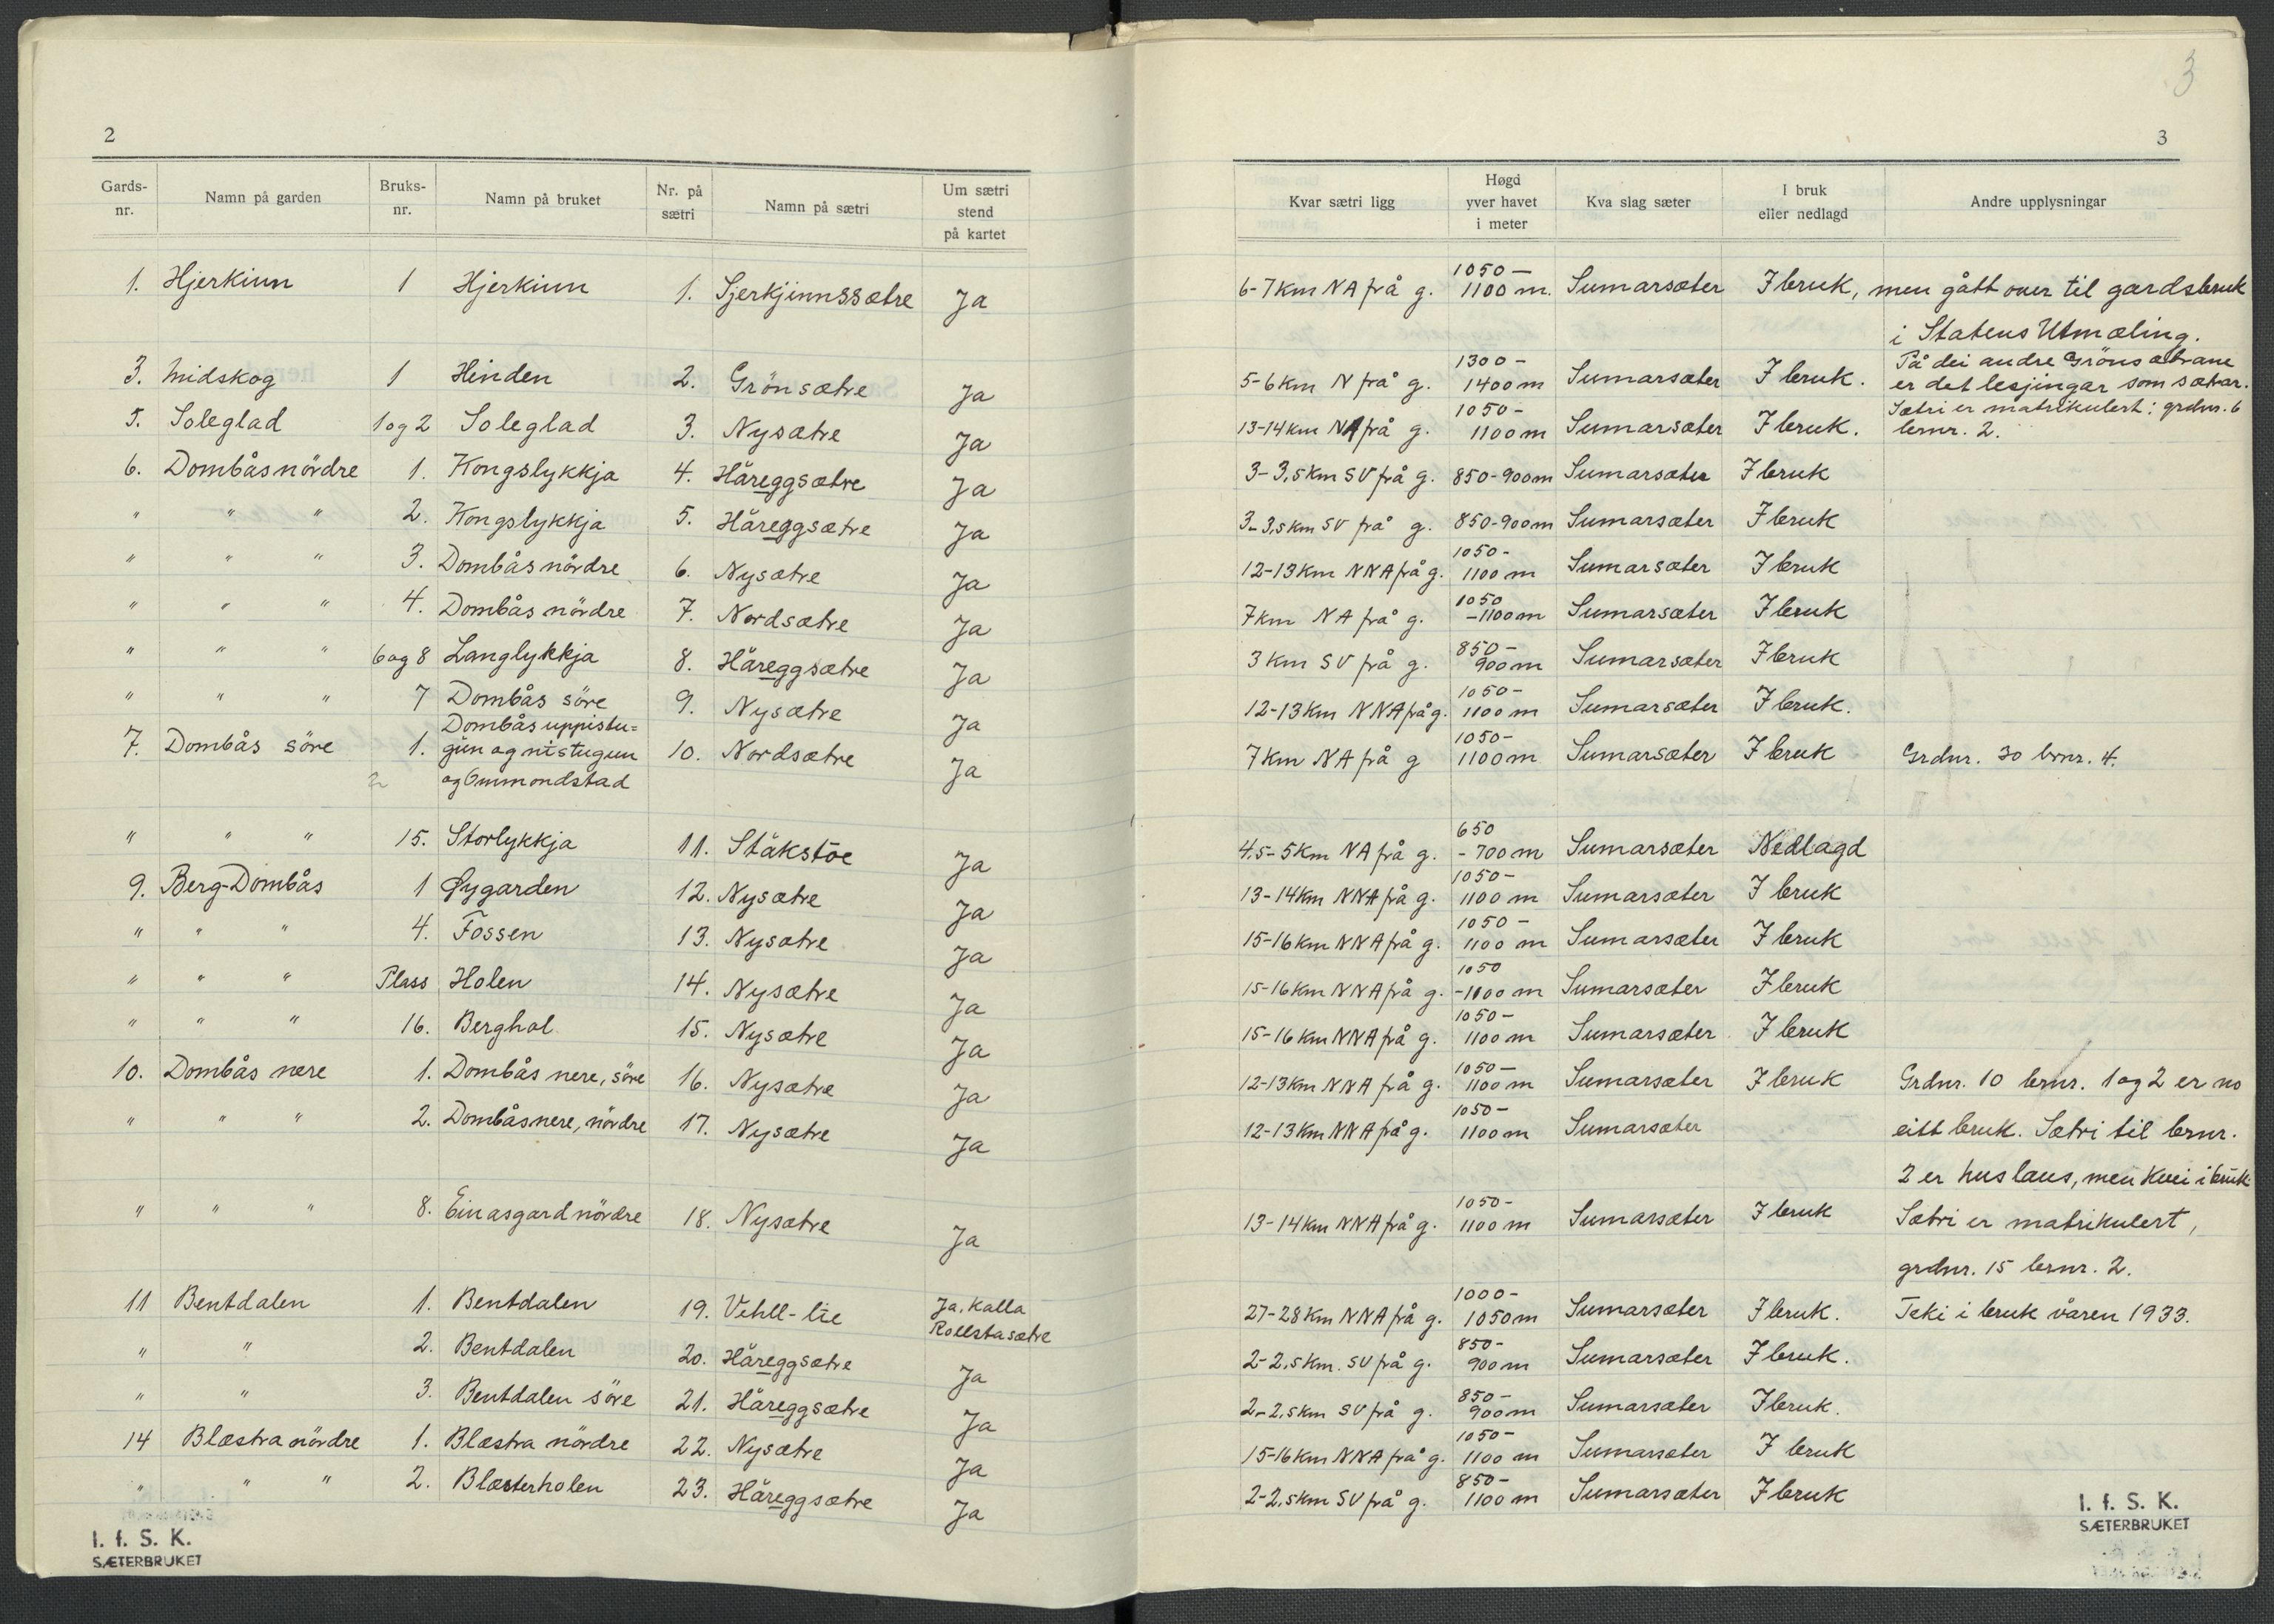 2
Gards-nr. | Namn på garden | Bruks-nr. | Namn på bruket | Nr. på sætri | Namn på sætri | Um sætri stend på kartet
1. Hjerkinn | 1 | Hjerkinn | 1. | Sjerkjinnssætre | Ja
3. Midskog | 1 | Hinden | 2. | Grönsætre | Ja
5. Soleglad | 1 og 2 | Soleglad | 3. | Nysætre | Ja
6. Dombås nördre | 1. | Kongslykkja | 4. | Håreggsætre | Ja
" " " | 2. | Kongslykkja | 5. | Håreggsætre | Ja
" " " | 3. | Dombås nördre | 6. | Nysætre | Ja
" " " | 4. | Dombås nördre | 7. | Nordsætre | Ja
" " " | 6 og 8 | Langlykkja | 8. | Håreggsætre | Ja
" " " | 7 | Dombås söre | 9. | Nysætre | Ja
7. Dombås söre | 1. | Dombås uppistu=
gun og nistugun | 10. | Nordsætre | Ja
2 | og Ommondstad
" " " | 15. | Storlykkja | 11. | Ståkstöe | Ja
9. Berg-Dombås | 1 | Øygarden | 12. | Nysætre | Ja
" " " | 4. | Fossen | 13. | Nysætre | Ja
" " " | Plass | Holen | 14. | Nysætre | Ja
" " " | 16. | Berghol | 15. | Nysætre | Ja
10. Dombås nere | 1. | Dombås nere, söre | 16. | Nysætre | Ja
" " " | 2. | Dombås nere, nördre | 17. | Nysætre | Ja
" " " | 8. | Einasgard nördre | 18. | Nysætre | Ja
11 Bentdalen | 1. | Bentdalen | 19. | Vehll-lie | Ja, kalla
Rollstasætre
" " | 2. | Bentdalen | 20. | Håreggsætre | Ja
" " | 3. | Bentdalen söre | 21. | Håreggsætre | Ja
14 Blæstra nördre | 1. | Blæstra nördre | 22. | Nysætre | Ja
" " " | 2. | Blæsterholen | 23. | Håreggsætre | Ja
I. f. S. K.
SÆTERBRUKET
3
3
Kvar sætri ligg | Høgd yver havet i meter | Kva slag sæter | I bruk eller nedlagd | Andre upplysningar
6-7 km NA frå g. | 1050-1100 m. | Sumarsæter | I bruk, men gått over til gardsbruk
i Statens Utmæling.
5-6 km N frå g. | 1300-1400 m | Sumarsæter | I bruk. | På dei andre Grönsætrane
er det lesjingar som sætrar.
13-14 km NA frå g. | 1050-1100 m | Sumarsæter | I bruk. | Sætri er matrikulert: grdnr. 6
brnr. 2.
3-3,5 km SV frå g. | 850-900 m | Sumarsæter | I bruk
3-3,5 km SV frå g. | 850-900 m | Sumarsæter | I bruk
12-13 km NNA frå g. | 1050-1100 m | Sumarsæter | I bruk
7 km NA frå g. | 1050-1100 m | Sumarsæter | I bruk
3 km SV frå g. | 850-900 m | Sumarsæter | I bruk
12-13 km NNA frå g. | 1050-1100 m | Sumarsæter | I bruk.
7 km NA frå g | 1050-1100 m | Sumarsæter | I bruk | Grdnr. 30 brnr. 4.
4,5-5 km NA frå g. | 650-700 m | Sumarsæter | Nedlagd
13-14 km NNA frå g. | 1050-1100 m | Sumarsæter | I bruk
15-16 km NNA frå g. | 1050-1100 m | Sumarsæter | I bruk
15-16 km NNA frå g. | 1050-1100 m | Sumarsæter | I bruk
15-16 km NNA frå g. | 1050-1100 m | Sumarsæter | I bruk
12-13 km NNA frå g. | 1050-1100 m | Sumarsæter | I bruk | Grdnr. 10 brnr. 1 og 2 er no
12-13 km NNA frå g. | 1050-1100 m | Sumarsæter | eitt bruk. Sætri til brnr.
2 er huslaus, men kvei i bruk
13-14 km NNA frå g. | 1050-1100 m | Sumarsæter | I bruk | Sætri er matrikulert,
grdnr. 15 brnr. 2.
27-28 km NNA frå g. | 1000-1050 m | Sumarsæter | I bruk. | Teki i bruk våren 1933.
2-2,5 km. SV frå g. | 850-900 m | Sumarsæter | I bruk.
2-2,5 km SV frå g. | 850-900 m | Sumarsæter | I bruk.
15-16 km NNA frå g. | 1050-1100 m | Sumarsæter | I bruk
2-2,5 km SV frå g. | 850-1100 m | Sumarsæter | I bruk
I. f. S. K.
SÆTERBRUKET